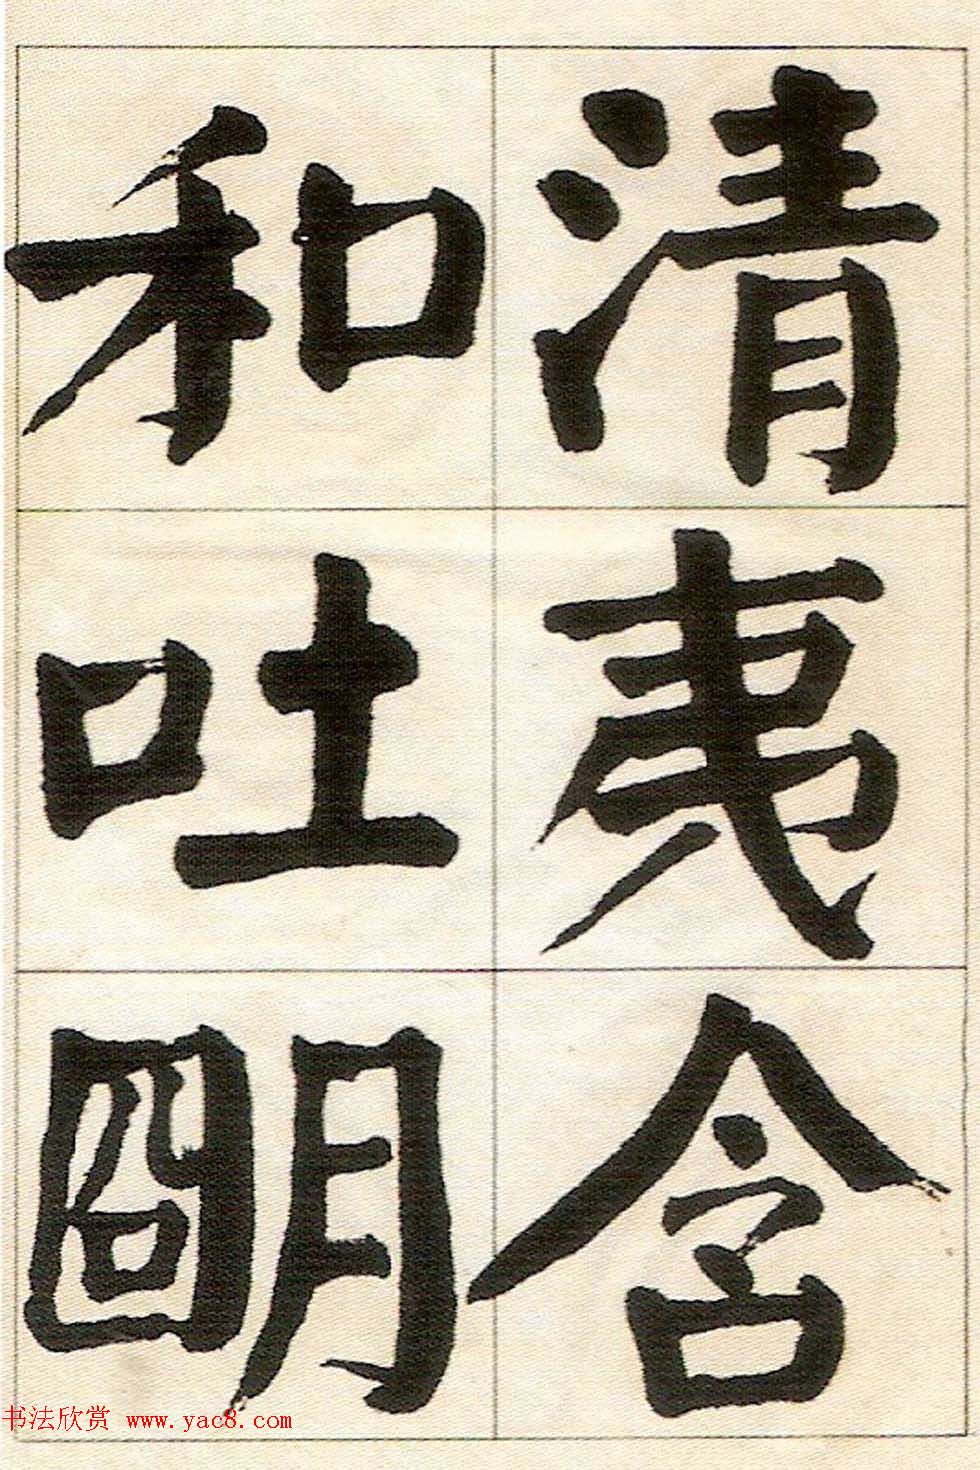 清夷含
和吐朙
书法欣赏 www.yac8.com